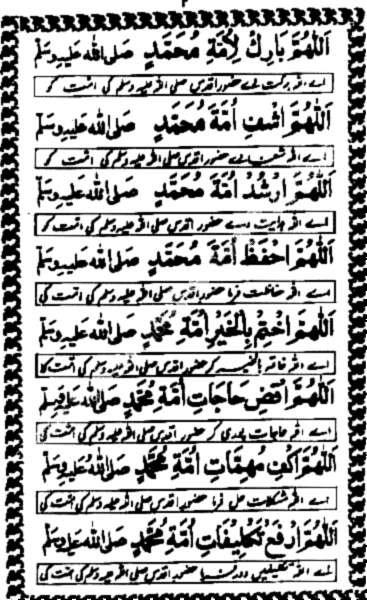 ٢
اَللّٰهُمَّ بَارِكْ لِاُمَّةِ مُحَمَّدٍ صَلَی اللهُ عَلَیْهِ وَسَلَّمْ
اے اللہ برکت دے حضور اقدس صلی اللہ علیہ وسلم کی امت کو
اَللّٰهُمَّ اشْفِ اُمَّةَ مُحَمَّدٍ صَلَی اللهُ عَلَیْهِ وَسَلَّمْ
اے اللہ شفا دے حضور اقدس صلی اللہ علیہ وسلم کی امت کو
اَللّٰهُمَّ ارْشُدْ اُمَّةَ مُحَمَّدٍ صَلَی اللهُ عَلَیْهِ وَسَلَّمْ
اے اللہ ہدایت دے حضور اقدس صلی اللہ علیہ وسلم کی امت کو
اَللّٰهُمَّ احْفَظْ اُمَّةَ مُحَمَّدٍ صَلَی اللهُ عَلَیْهِ وَسَلَّمْ
اے اللہ حفاظت فرما حضور اقدس صلی اللہ علیہ وسلم کی امت کی
اَللّٰهُمَّ اخْتِمْ بِالْخَیْرِ اُمَّةِ مُحَمَّدٍ صَلَی اللهُ عَلَیْهِ وَسَلَّمْ
اے اللہ خاتمہ بالخیر کر حضور اقدس صلی اللہ علیہ وسلم کی امت کا
اَللّٰهُمَّ اقْضِ حَاجَاتِ اُمَّةِ مُحَمَّدٍ صَلَی اللهُ عَلَیْهِ وَسَلَّمْ
اے اللہ حاجات پوری کر حضور اقدس صلی اللہ علیہ وسلم کی امت کی
اَللّٰهُمَّ اكْفِ مُهِمَّاتِ اُمَّةِ مُحَمَّدٍ صَلَی اللهُ عَلَیْهِ وَسَلَّمْ
اے اللہ مشکلات حل فرما حضور اقدس صلی اللہ علیہ وسلم کی امت کی
اَللّٰهُمَّ ارْفَعْ تَكْلِیْفَاتِ اُمَّةِ مُحَمَّدٍ صَلَی اللهُ عَلَیْهِ وَسَلَّمْ
اے اللہ تکلیفیں دور فرما حضور اقدس صلی اللہ علیہ وسلم کی امت کی